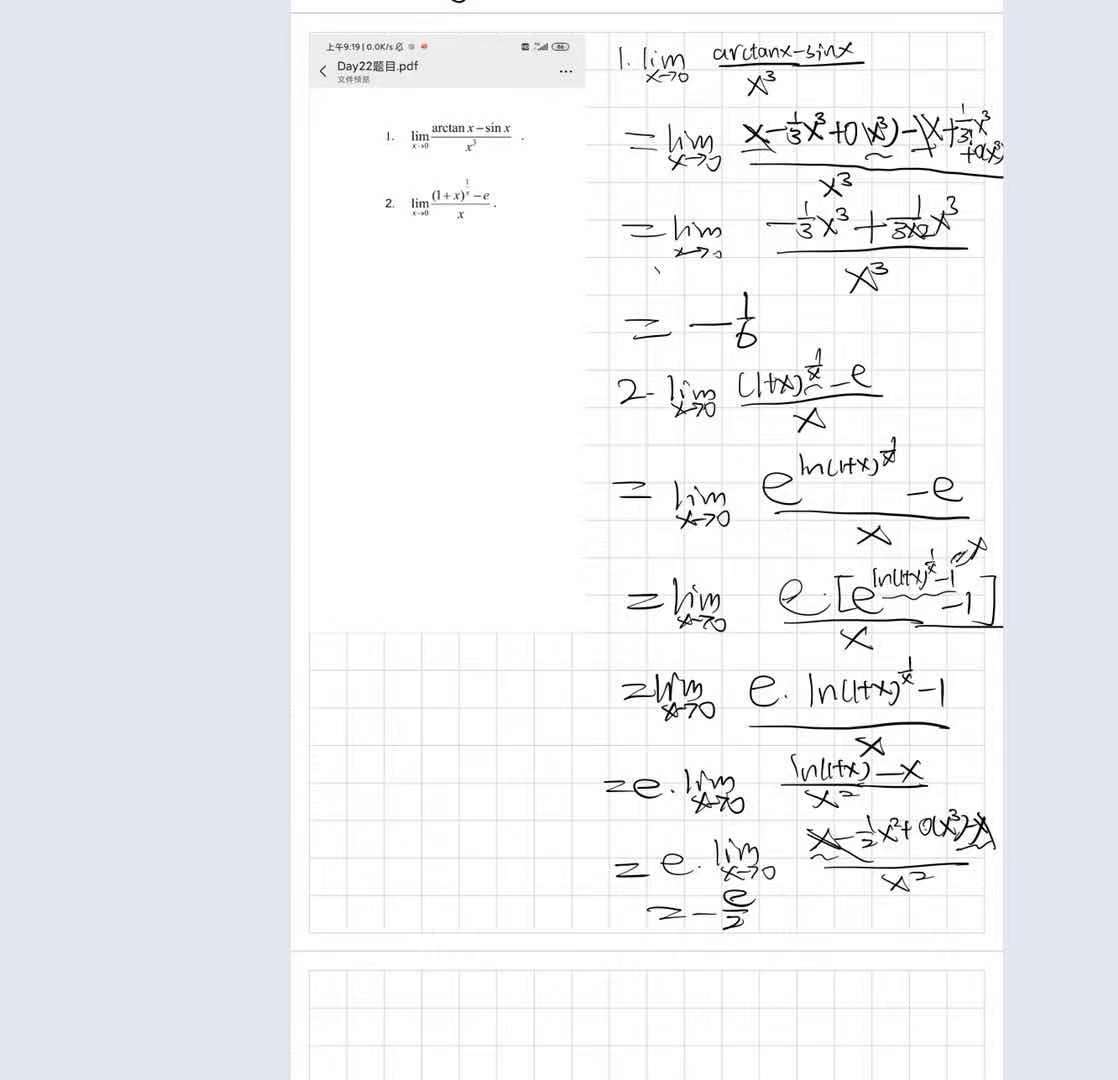 上午9:19 | 0.0K/s
86
Day22题目.pdf
文件预览
...
1. lim x→0 (arctan x − sin x)/x³ .
2. lim x→0 ((1+x)^(1/x) − e)/x .
1. lim x→0 (arctanx−sinx)/x³
= lim x→0 (x−1/3x³+o(x³)−x+1/3!x³+o(x³))/x³
= lim x→0 (−1/3x³+1/(3×2)x³)/x³
= −1/6
2. lim x→0 ((1+x)^(1/x)−e)/x
= lim x→0 (e^(ln(1+x)^(1/x))−e)/x
= lim x→0 e·[e^(ln(1+x)^(1/x)−1)−1]/x
= lim x→0 (e·ln(1+x)^(1/x)−1)/x
= e·lim x→0 (ln(1+x)−x)/x²
= e·lim x→0 (x−1/2x²+o(x³)−x)/x²
= −e/2